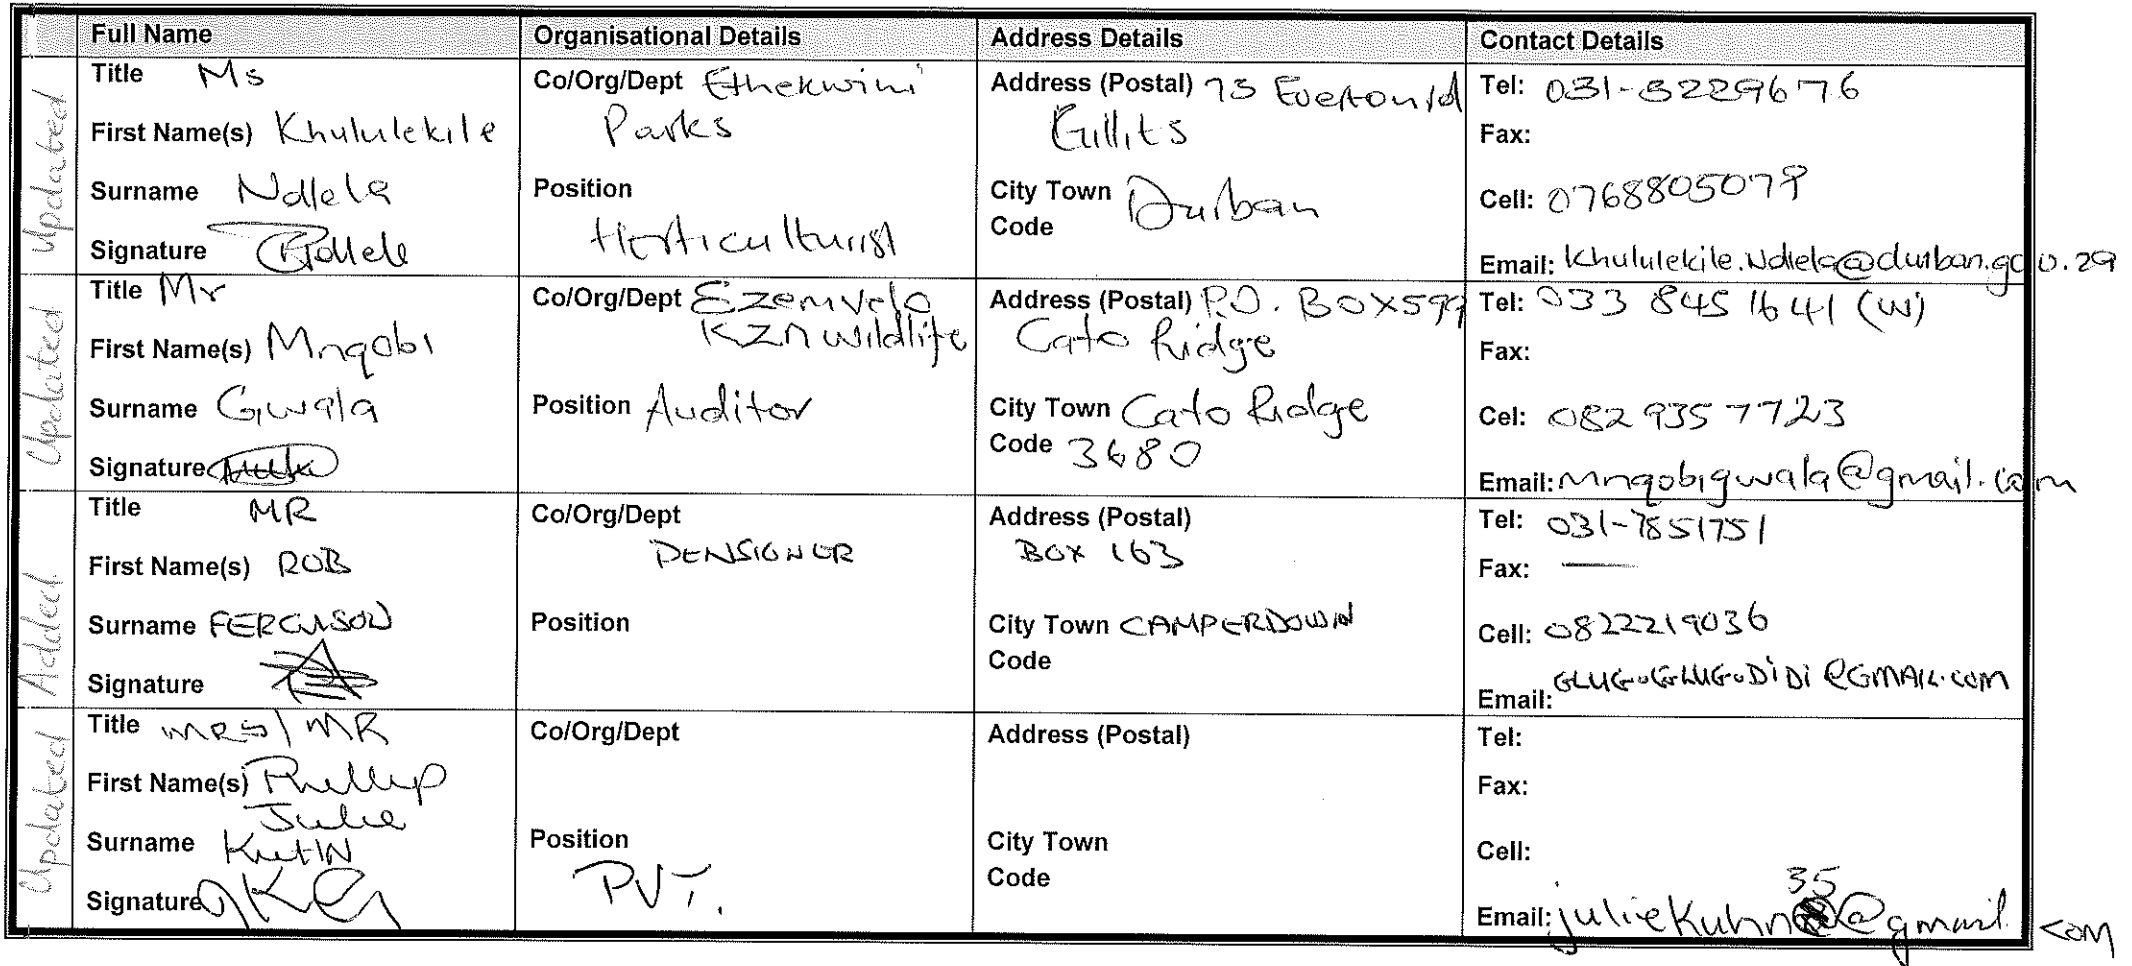 Full Name Organisational Details Address Details Contact Details
Updated
Title Ms
First Name(s) Khululekile
Surname Ndlela
Signature
Co/Org/Dept Ethekwini
Parks
Position
Horticulturist
Address (Postal) 75 Everton rd
Gillits
City Town Durban
Code
Tel: 031-3229676
Fax:
Cell: 0768805079
Email: Khululekile.Ndlela@durban.gov.za
Updated
Title Mr
First Name(s) Mnqobi
Surname Gwala
Signature
Co/Org/Dept Ezemvelo
KZN wildlife
Position Auditor
Address (Postal) P.O. BOX 599
Cato Ridge
City Town Cato Ridge
Code 3680
Tel: 033 845 1641 (W)
Fax:
Cel: 082 935 7723
Email: mnqobigwala@gmail.com
Added
Title MR
First Name(s) ROB
Surname FERGUSON
Signature
Co/Org/Dept
PENSIONER
Position
Address (Postal)
BOX 163
City Town CAMPERDOWN
Code
Tel: 031-7851751
Fax: —
Cell: 0822219036
GLUG.GLUG.DiDi@GMAIL.COM
Email:
Updated
Title MRS/MR
First Name(s) Phillip
Julie
Surname KUHN
Signature
Co/Org/Dept
Position
PVT.
Address (Postal)
City Town
Code
Tel:
Fax:
Cell:
35
Email: juliekuhn@gmail.com